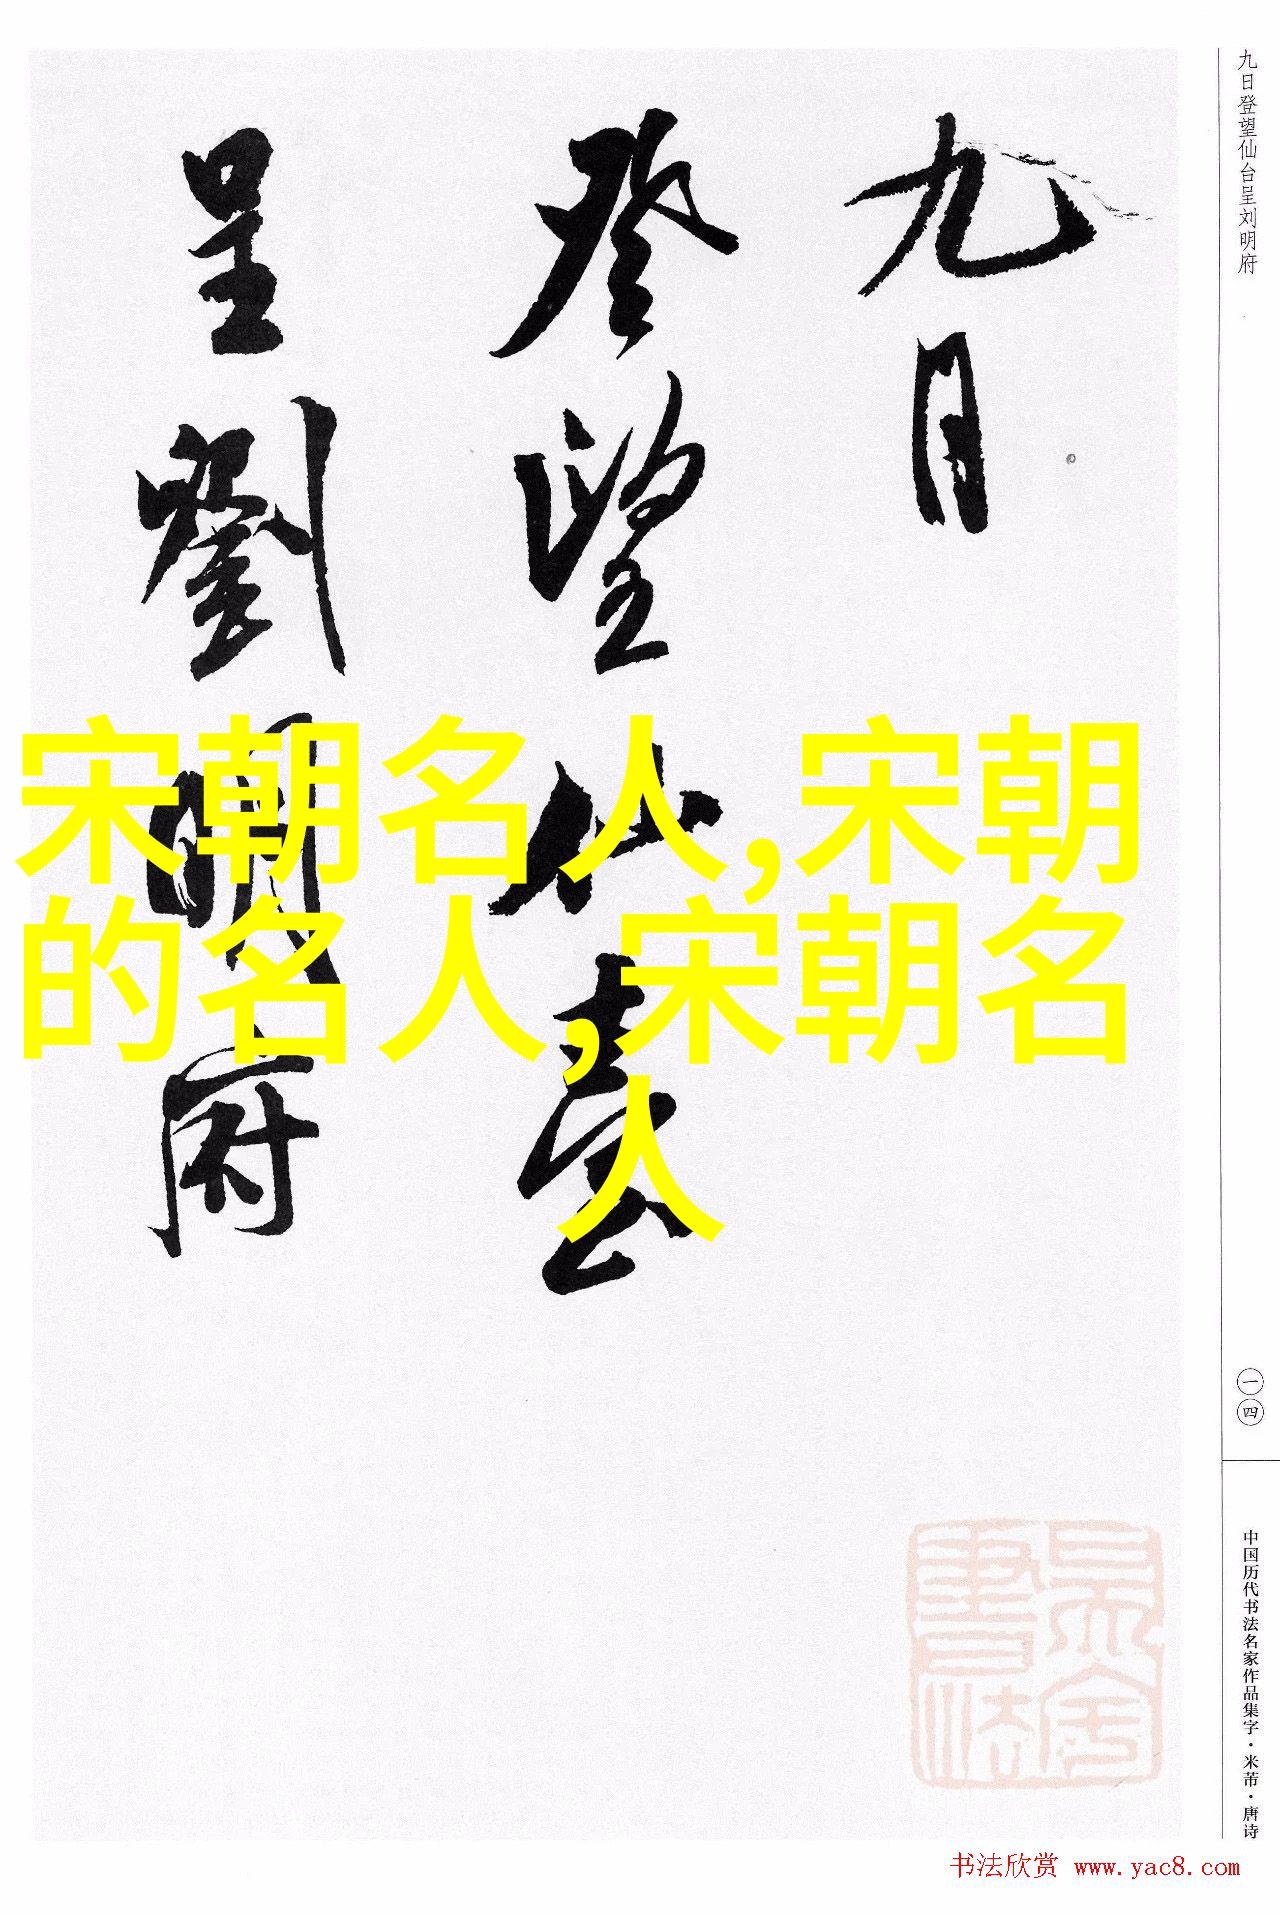 九日
登望仙臺
呈劉明府
宋朝名人,宋朝
的名人,宋朝名
人
九日登望仙台呈刘明府
一四
中国历代书法名家作品集字·米芾·唐诗
书法欣赏 www.yac8.com